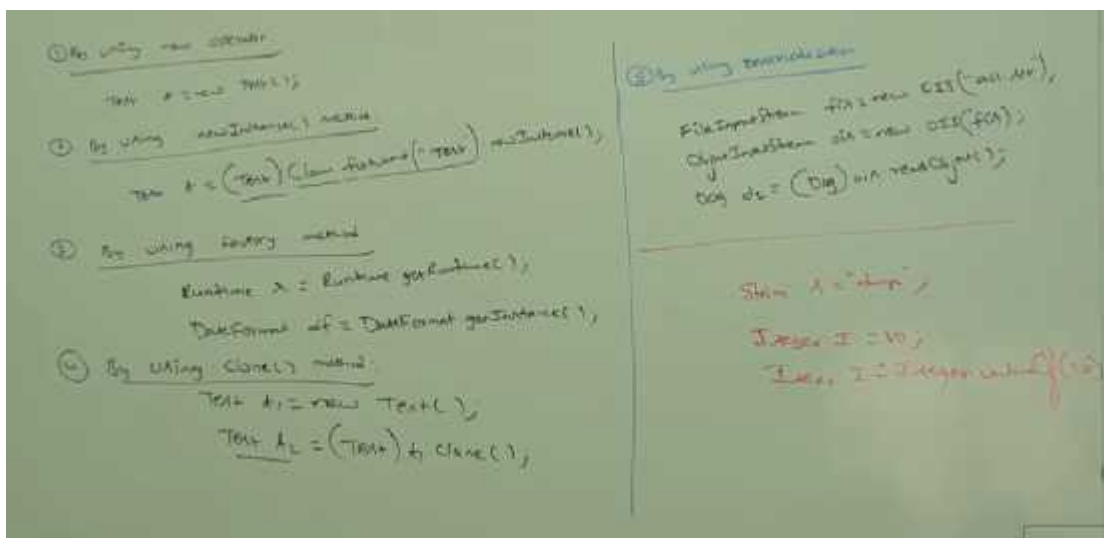 ① By using new operator
Test t = new Test();
② By using newInstance() method
Test t = (Test) Class.forName("Test").newInstance();
③ By using factory method
Runtime r = Runtime.getRuntime();
DateFormat df = DateFormat.getInstance();
④ By using clone() method
Test t1 = new Test();
Test t2 = (Test) t1.clone();
⑤ By using Deserialization
FileInputStream fis = new FIS("abc.ser");
ObjectInputStream ois = new OIS(fis);
Dog d2 = (Dog) ois.readObject();
String s = "durga";
Integer I = 10;
Integer I = Integer.valueOf(10)